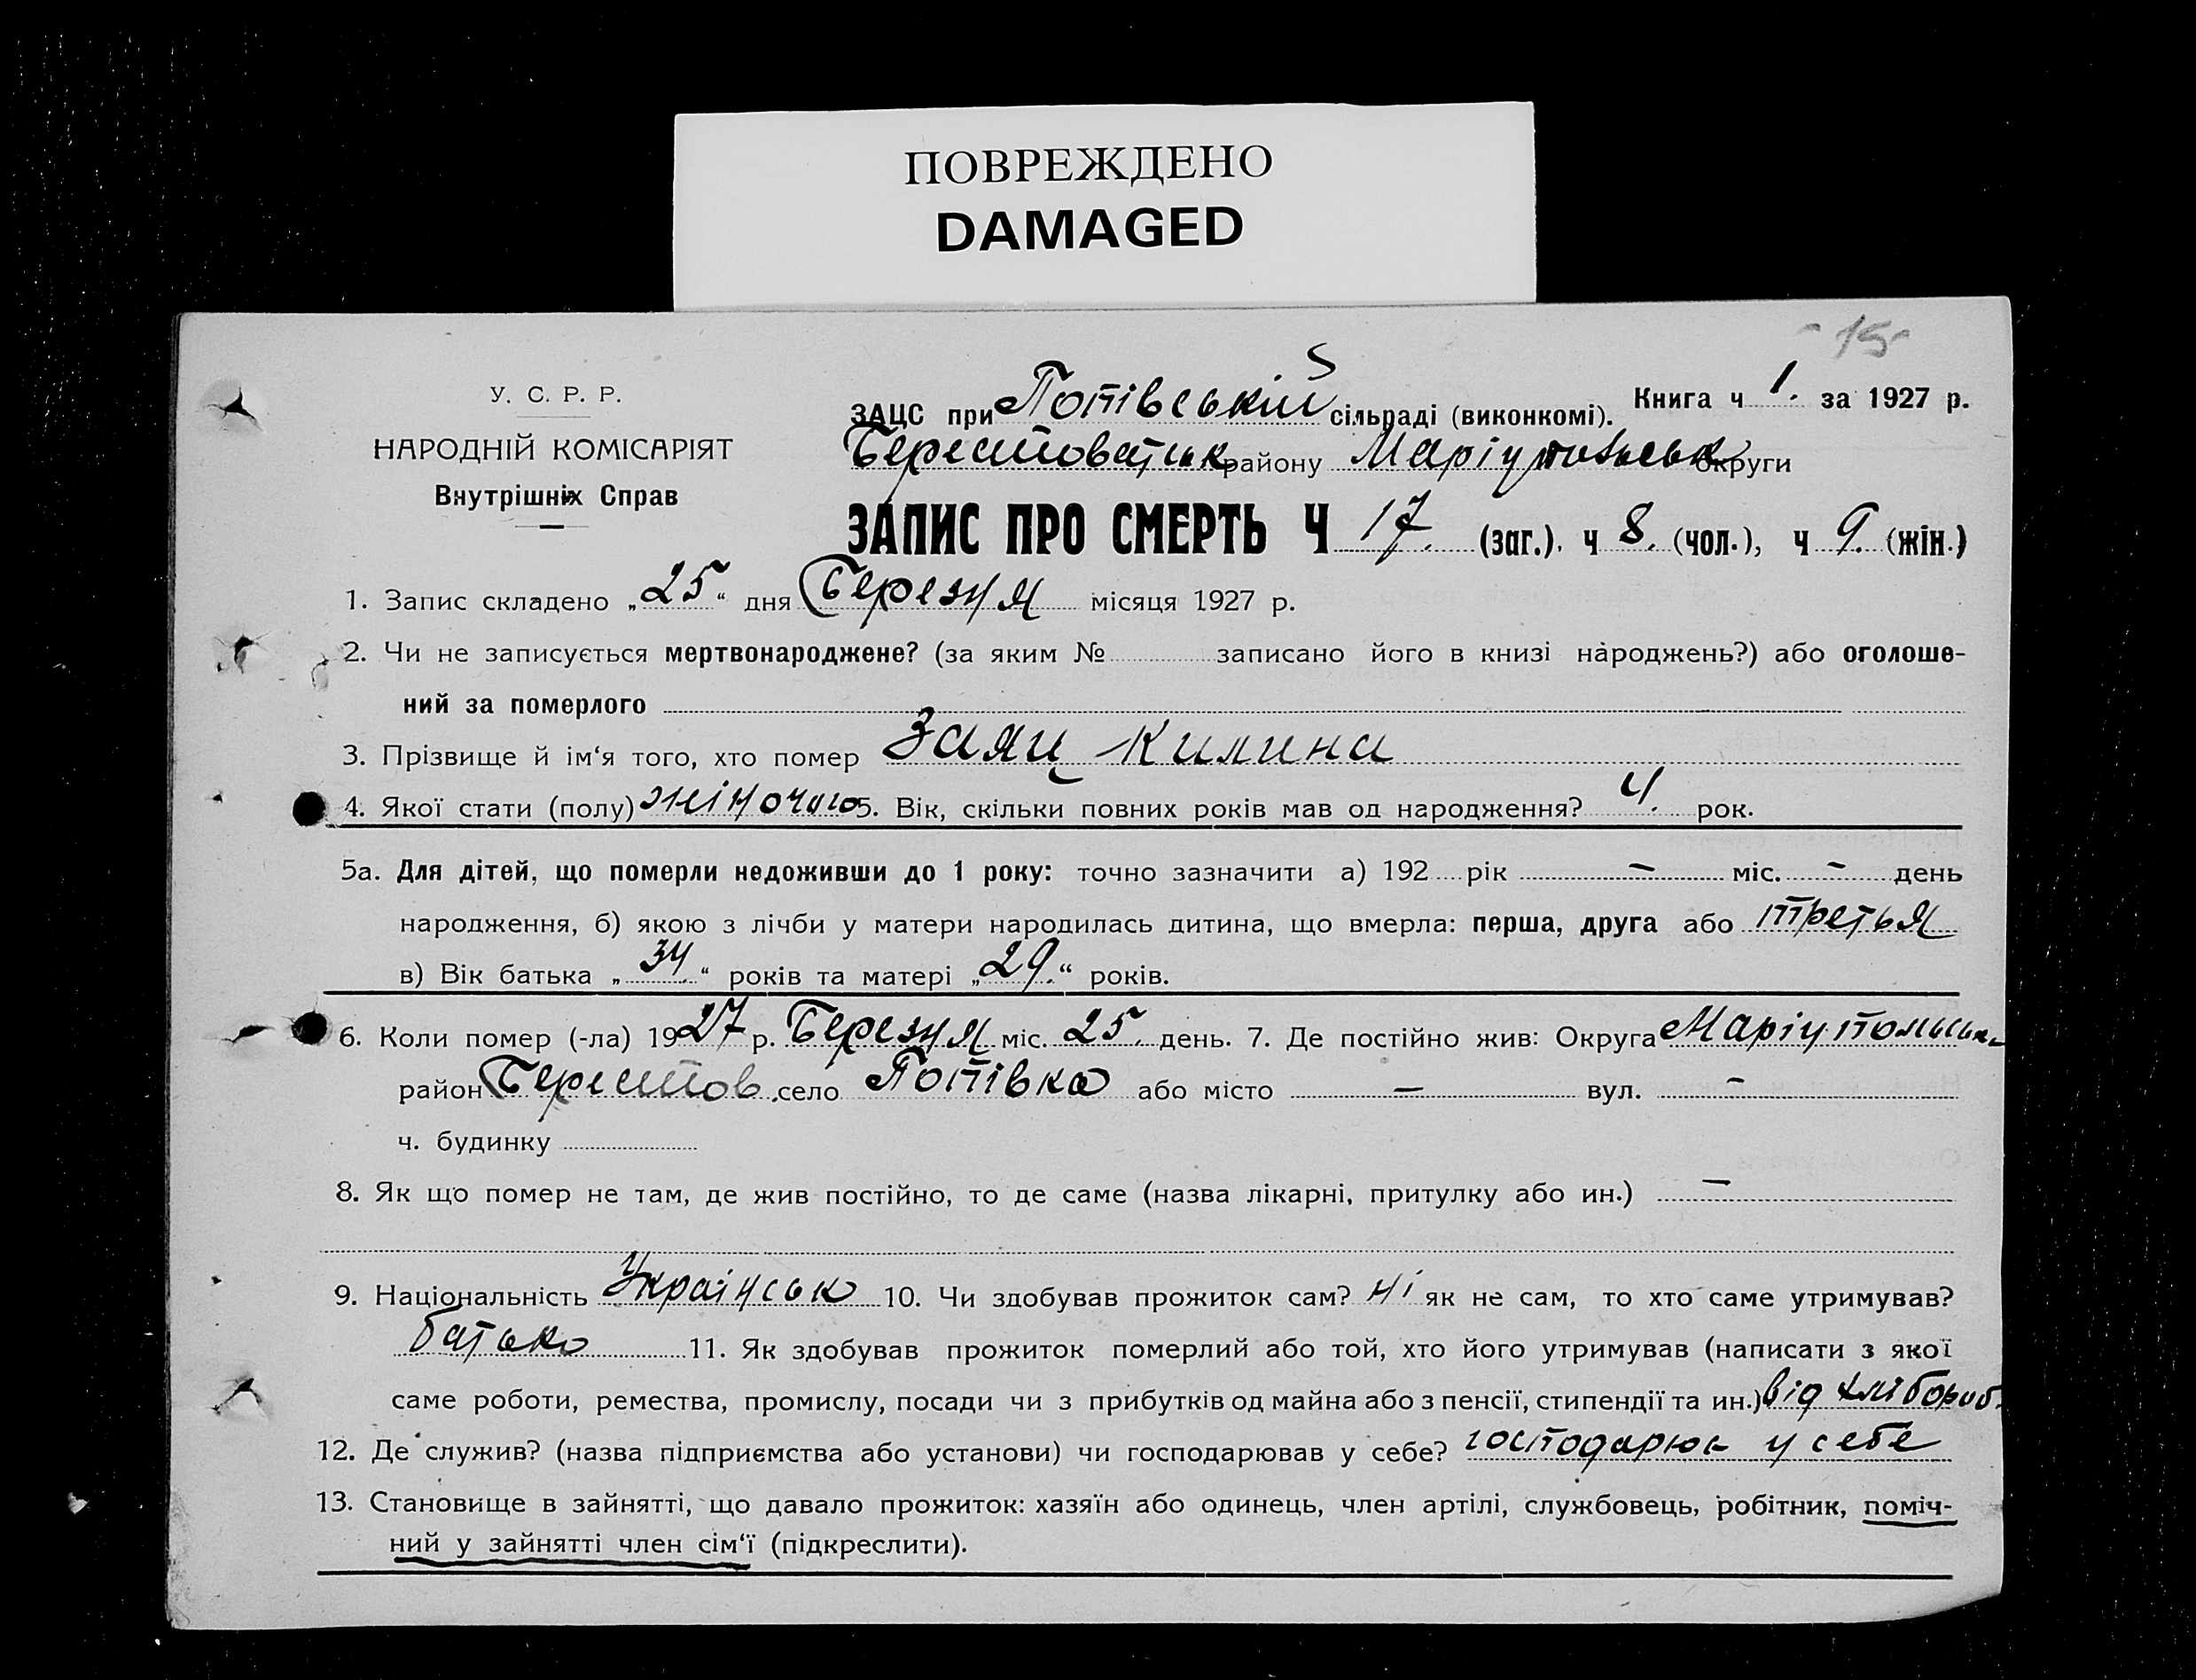 ПОВРЕЖДЕНО
DAMAGED
15
У. С. Р. Р.
НАРОДНІЙ КОМІСАРІЯТ
Внутрішніх Справ
ЗАЦС при Попівській сільраді (виконкомі). Книга ч 1. за 1927 р.
Берестоватськ району Маріупольськ округи
ЗАПИС ПРО СМЕРТЬ Ч 17. (заг.), ч 8. (чол.), ч 9. (жін.)
1. Запис складено „25“ дня Березня місяця 1927 р.
2. Чи не записується мертвонароджене? (за яким № записано його в книзі народжень?) або оголоше-
ний за померлого
3. Прізвище й ім‘я того, хто помер Заяц Килина
4. Якої стати (полу) жіночого 5. Вік, скільки повних років мав од народження? 4. рок.
5а. Для дітей, що померли недоживши до 1 року: точно зазначити а) 192 рік — міс. — день
народження, б) якою з лічби у матери народилась дитина, що вмерла: перша, друга або третья
в) Вік батька „34.“ років та матері „29.“ років.
6. Коли помер (-ла) 1927 р. Березня міс. 25. день. 7. Де постійно жив: Округа Маріупольськ
район Берестов. село Попівка або місто — вул. —
ч. будинку
8. Як що помер не там, де жив постійно, то де саме (назва лікарні, притулку або ин.) —
9. Національність Українськ 10. Чи здобував прожиток сам? Ні як не сам, то хто саме утримував?
батько 11. Як здобував прожиток померлий або той, хто його утримував (написати з якої
саме роботи, ремества, промислу, посади чи з прибутків од майна або з пенсії, стипендії та ин.) від хлібороб.
12. Де служив? (назва підприємства або установи) чи господарював у себе? господарює у себе
13. Становище в зайнятті, що давало прожиток: хазяїн або одинець, член артілі, службовець, робітник, поміч-
ний у зайнятті член сім‘ї (підкреслити).